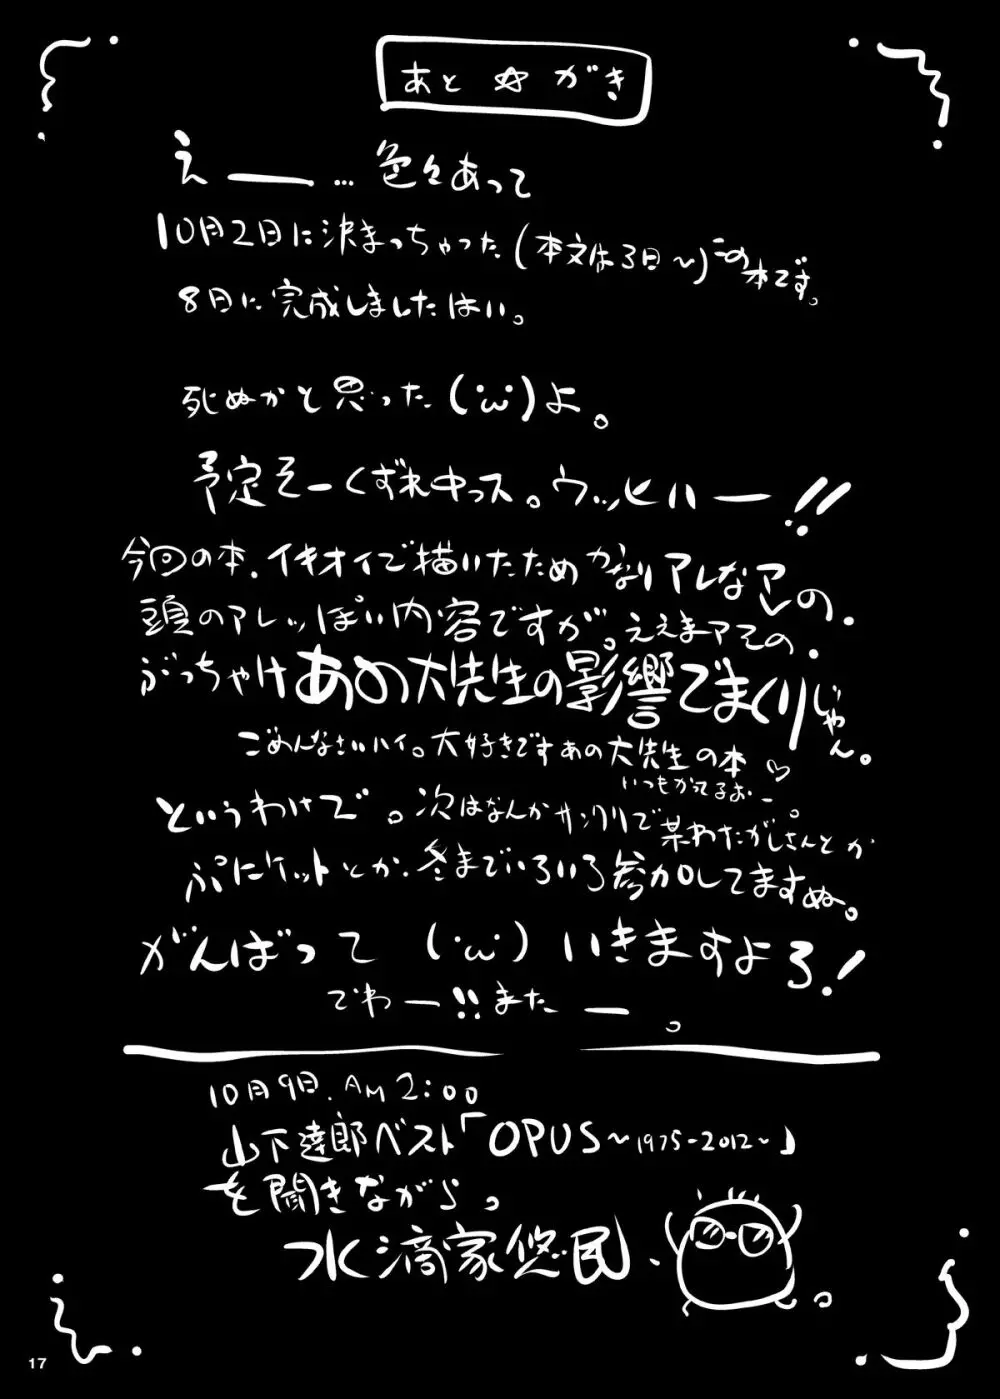 あと☆がき
えー…色々あって
10月2日に決まっちゃった(本文は3日〜)この本です。
8日に完成しましたはい。
死ぬかと思った(´ω`)よ。
予定そーくずれ中っス。ウッヒハー!!
今回の本、イキオイで描いたためかなりアレなアレの、
頭のアレっぽい内容ですが。ええまアその、
ぶっちゃけあの大先生の影響でまくりじゃん。
ごめんなさいハイ。大好きですあの大先生の本♡
いつもかってるおー。
というわけで。次はなんかサンクリで某わたがしさんとか
ぷにケットとか、冬までいろいろ参加してますぬ。
がんばって(´ω`)いきますよろ!
でわー!!またー。
10月9日、AM2:00
山下達郎ベスト「OPUS〜1975-2012〜」
を聞きながら。
水滴家悠民、
17